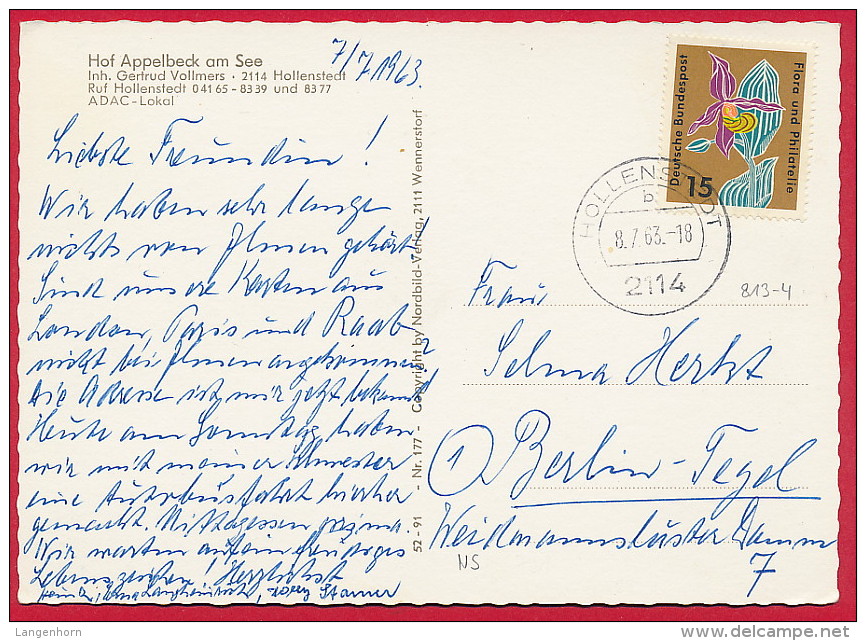 Hof Appelbeck am See
Inh. Gertrud Vollmers · 2114 Hollenstedt
Ruf Hollenstedt 0 41 65 - 83 39 und 83 77
ADAC-Lokal
7/7 1963.
Liebste Freundin!
Wir haben sehr lange
nichts von Ihnen gehört
Sind unsere Karten aus
London, Paris und Raab
nicht bei Ihnen angekommen?
die Adresse ist mir jetzt bekannt
Heute am Sonntag haben
wir mit meiner Schwester
eine Autobusfahrt hierher
gemacht. Mittagessen prima.
Wir warten auf ein
Lebenszeichen! Herzlichst
52 - 91 - Nr. 177 - Copyright by Nordbild-Verlag, 2111 Wennerstorf
Deutsche Bundespost
Flora und Philatelie
15
HOLLENSTEDT
b
8.7.63.-18
2114
813-4
Frau
Selma Herbst
1 Berlin-Tegel
Weidmannsluster Damm
7
NS
Langenhorn
delcampe.net